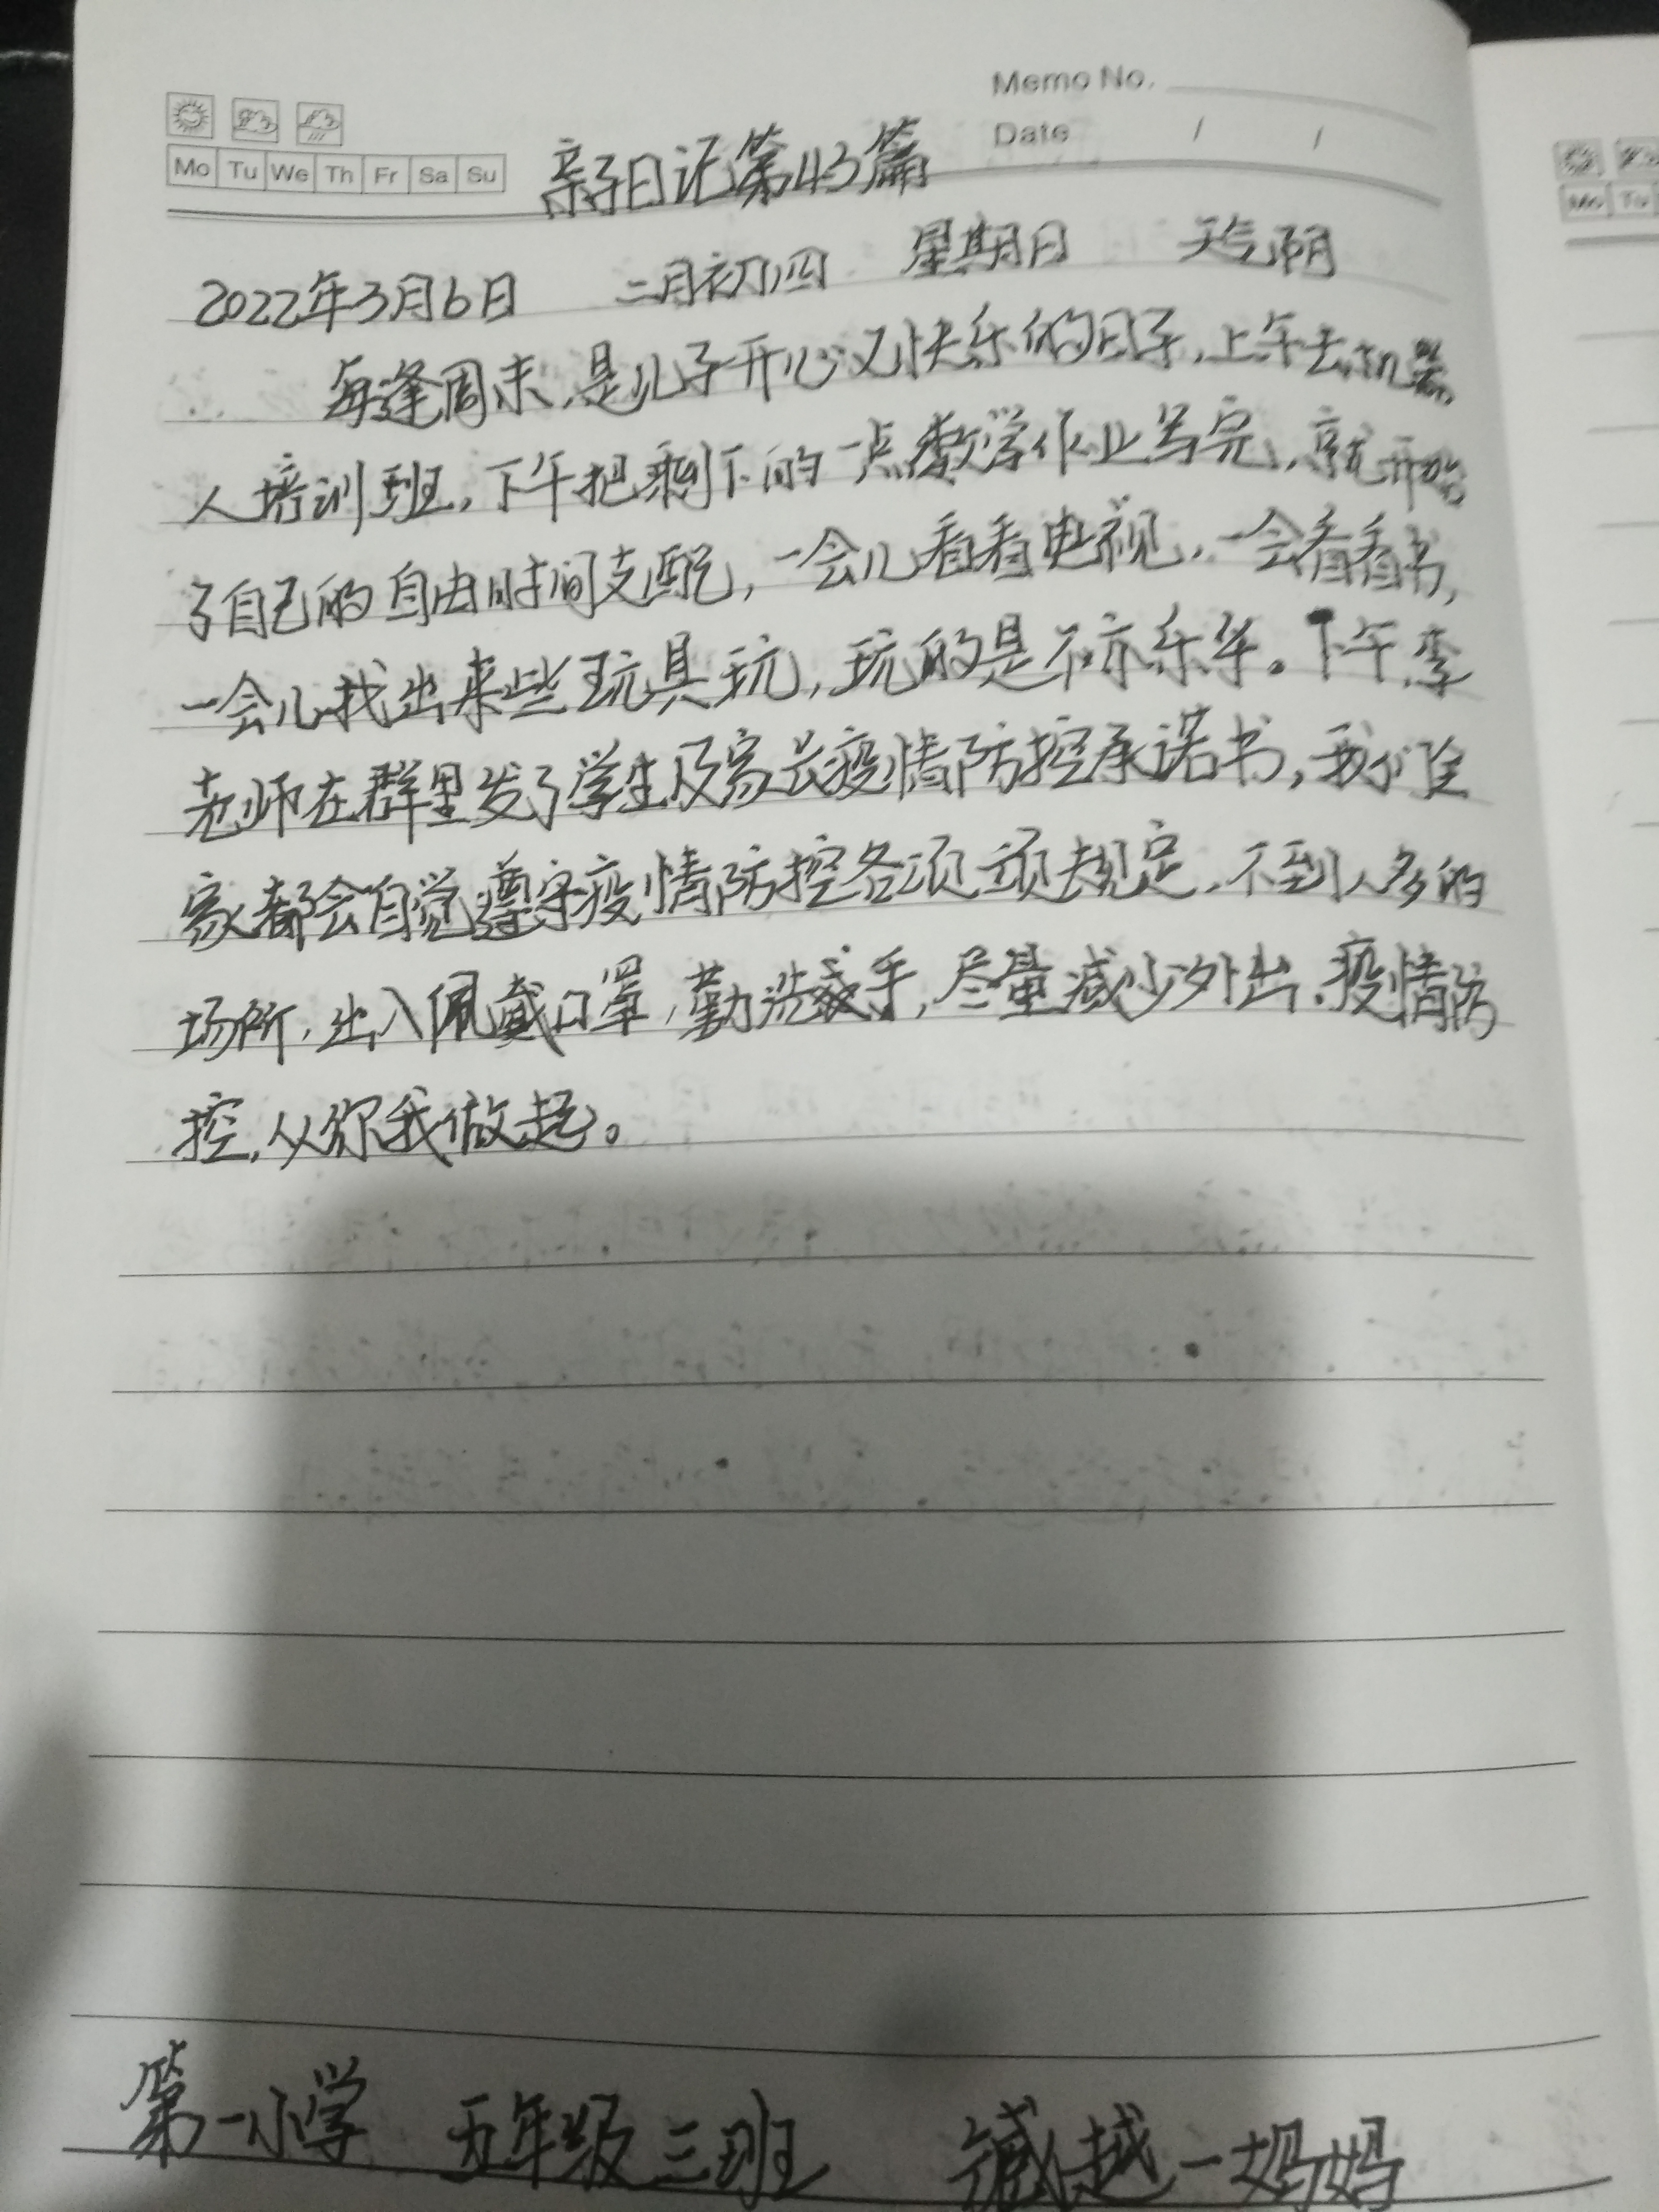 Memo No.
Date / /
Mo Tu We Th Fr Sa Su
亲子日记第43篇
2022年3月6日 二月初四 星期日 天气阴
每逢周末,是儿子开心又快乐的日子,上午去机器
人培训班,下午把剩下的一点数学作业写完,就开始
了自己的自由时间支配,一会儿看看电视,一会看看书,
一会儿找出来些玩具玩,玩的是不亦乐乎。下午,李
老师在群里发了学生及家长疫情防控承诺书,我们全
家都会自觉遵守疫情防控各项规定,不到人多的
场所,出入佩戴口罩,勤洗手,尽量减少外出,疫情防
控,从你我做起。
第一小学 五年级三班 越一妈妈
Mo Tu